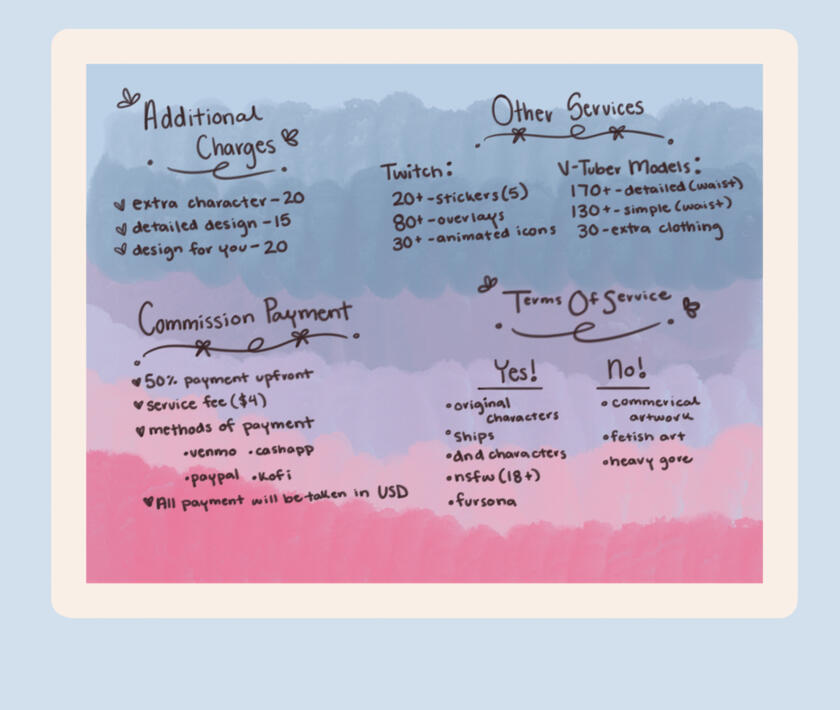 Additional
Charges
extra character-20
detailed design-15
design for you-20
Other Services
Twitch:
20+-stickers(5)
80+-overlays
30+-animated icons
V-Tuber Models:
170+-detailed(waist)
130+-simple(waist)
30-extra clothing
Commission Payment
50% payment upfront
service fee($4)
methods of payment
•venmo •cashapp
•paypal •kofi
All payment will be taken in USD
Terms Of Service
Yes!
•original
characters
•ships
•dnd characters
•nsfw(18+)
•fursona
No!
•commerical
artwork
•fetish art
•heavy gore